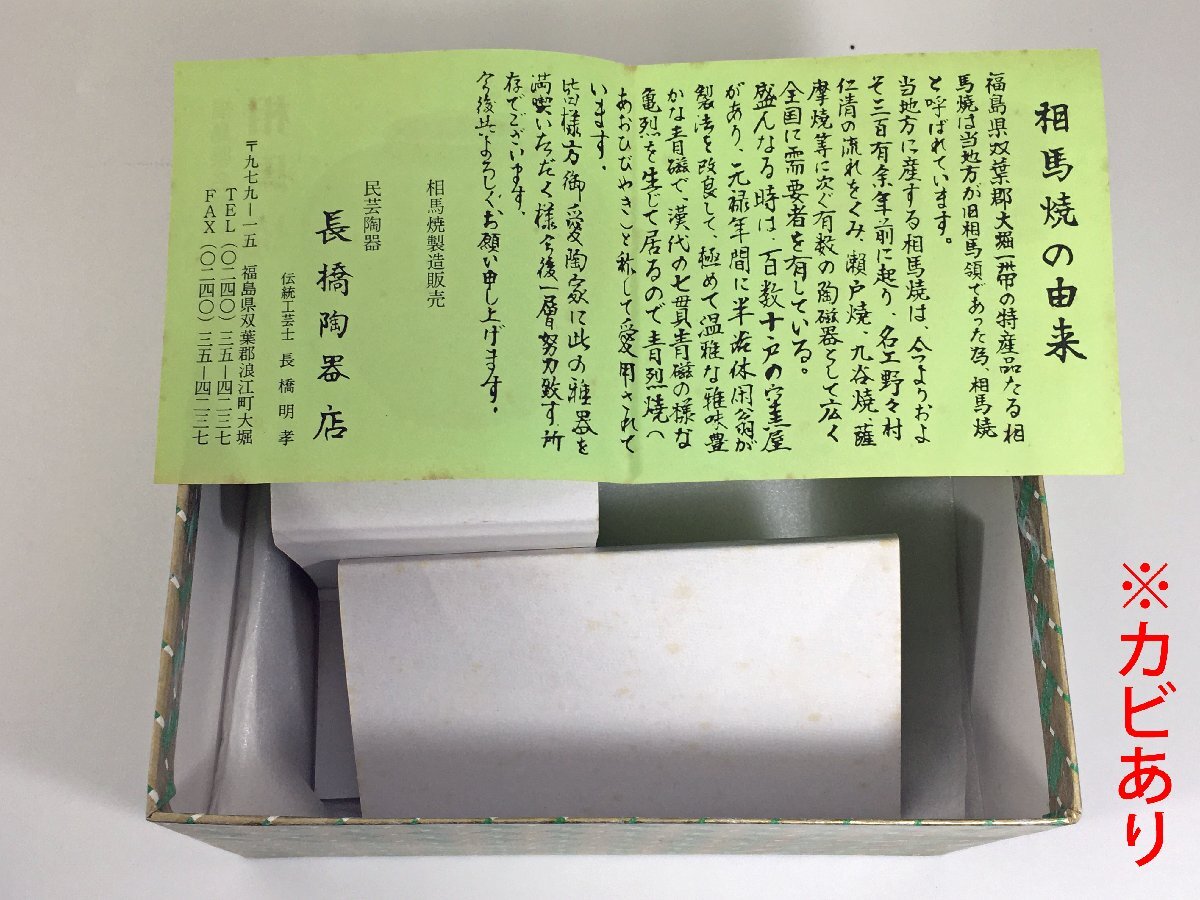 相馬焼の由来
福島県双葉郡大堀一帯の特産品たる相
馬焼は当地方が旧相馬領であった為、相馬焼
と呼ばれています。
当地方に産する相馬焼は、今よりおよ
そ三百有余年前に起り、名工野々村
仁清の流れをくみ、瀬戸焼、九谷焼、薩
摩焼等に次ぐ有数の陶磁器として広く
全国に需要者を有している。
盛んなる時は、百数十戸の窯屋
があり、元禄年間に半谷休閑翁が
製法を改良して、極めて温雅な雅味豊
かな青磁で、漢代の七貫青磁の様な
亀烈を生じて居るので青烈焼へ
あおひびやき〉と称して愛用されて
います。
皆様方御愛陶家に此の雅器を
満喫いただく様今後一層努力致す所
存でございます。
今後共よろしくお願い申し上げます。
相馬焼製造販売
民芸陶器
長橋陶器店
伝統工芸士 長橋明孝
〒九七九ー一五 福島県双葉郡浪江町大堀
TEL(〇二四〇)三五ー四二三七
FAX(〇二四〇)三五ー四二三七
※カビあり